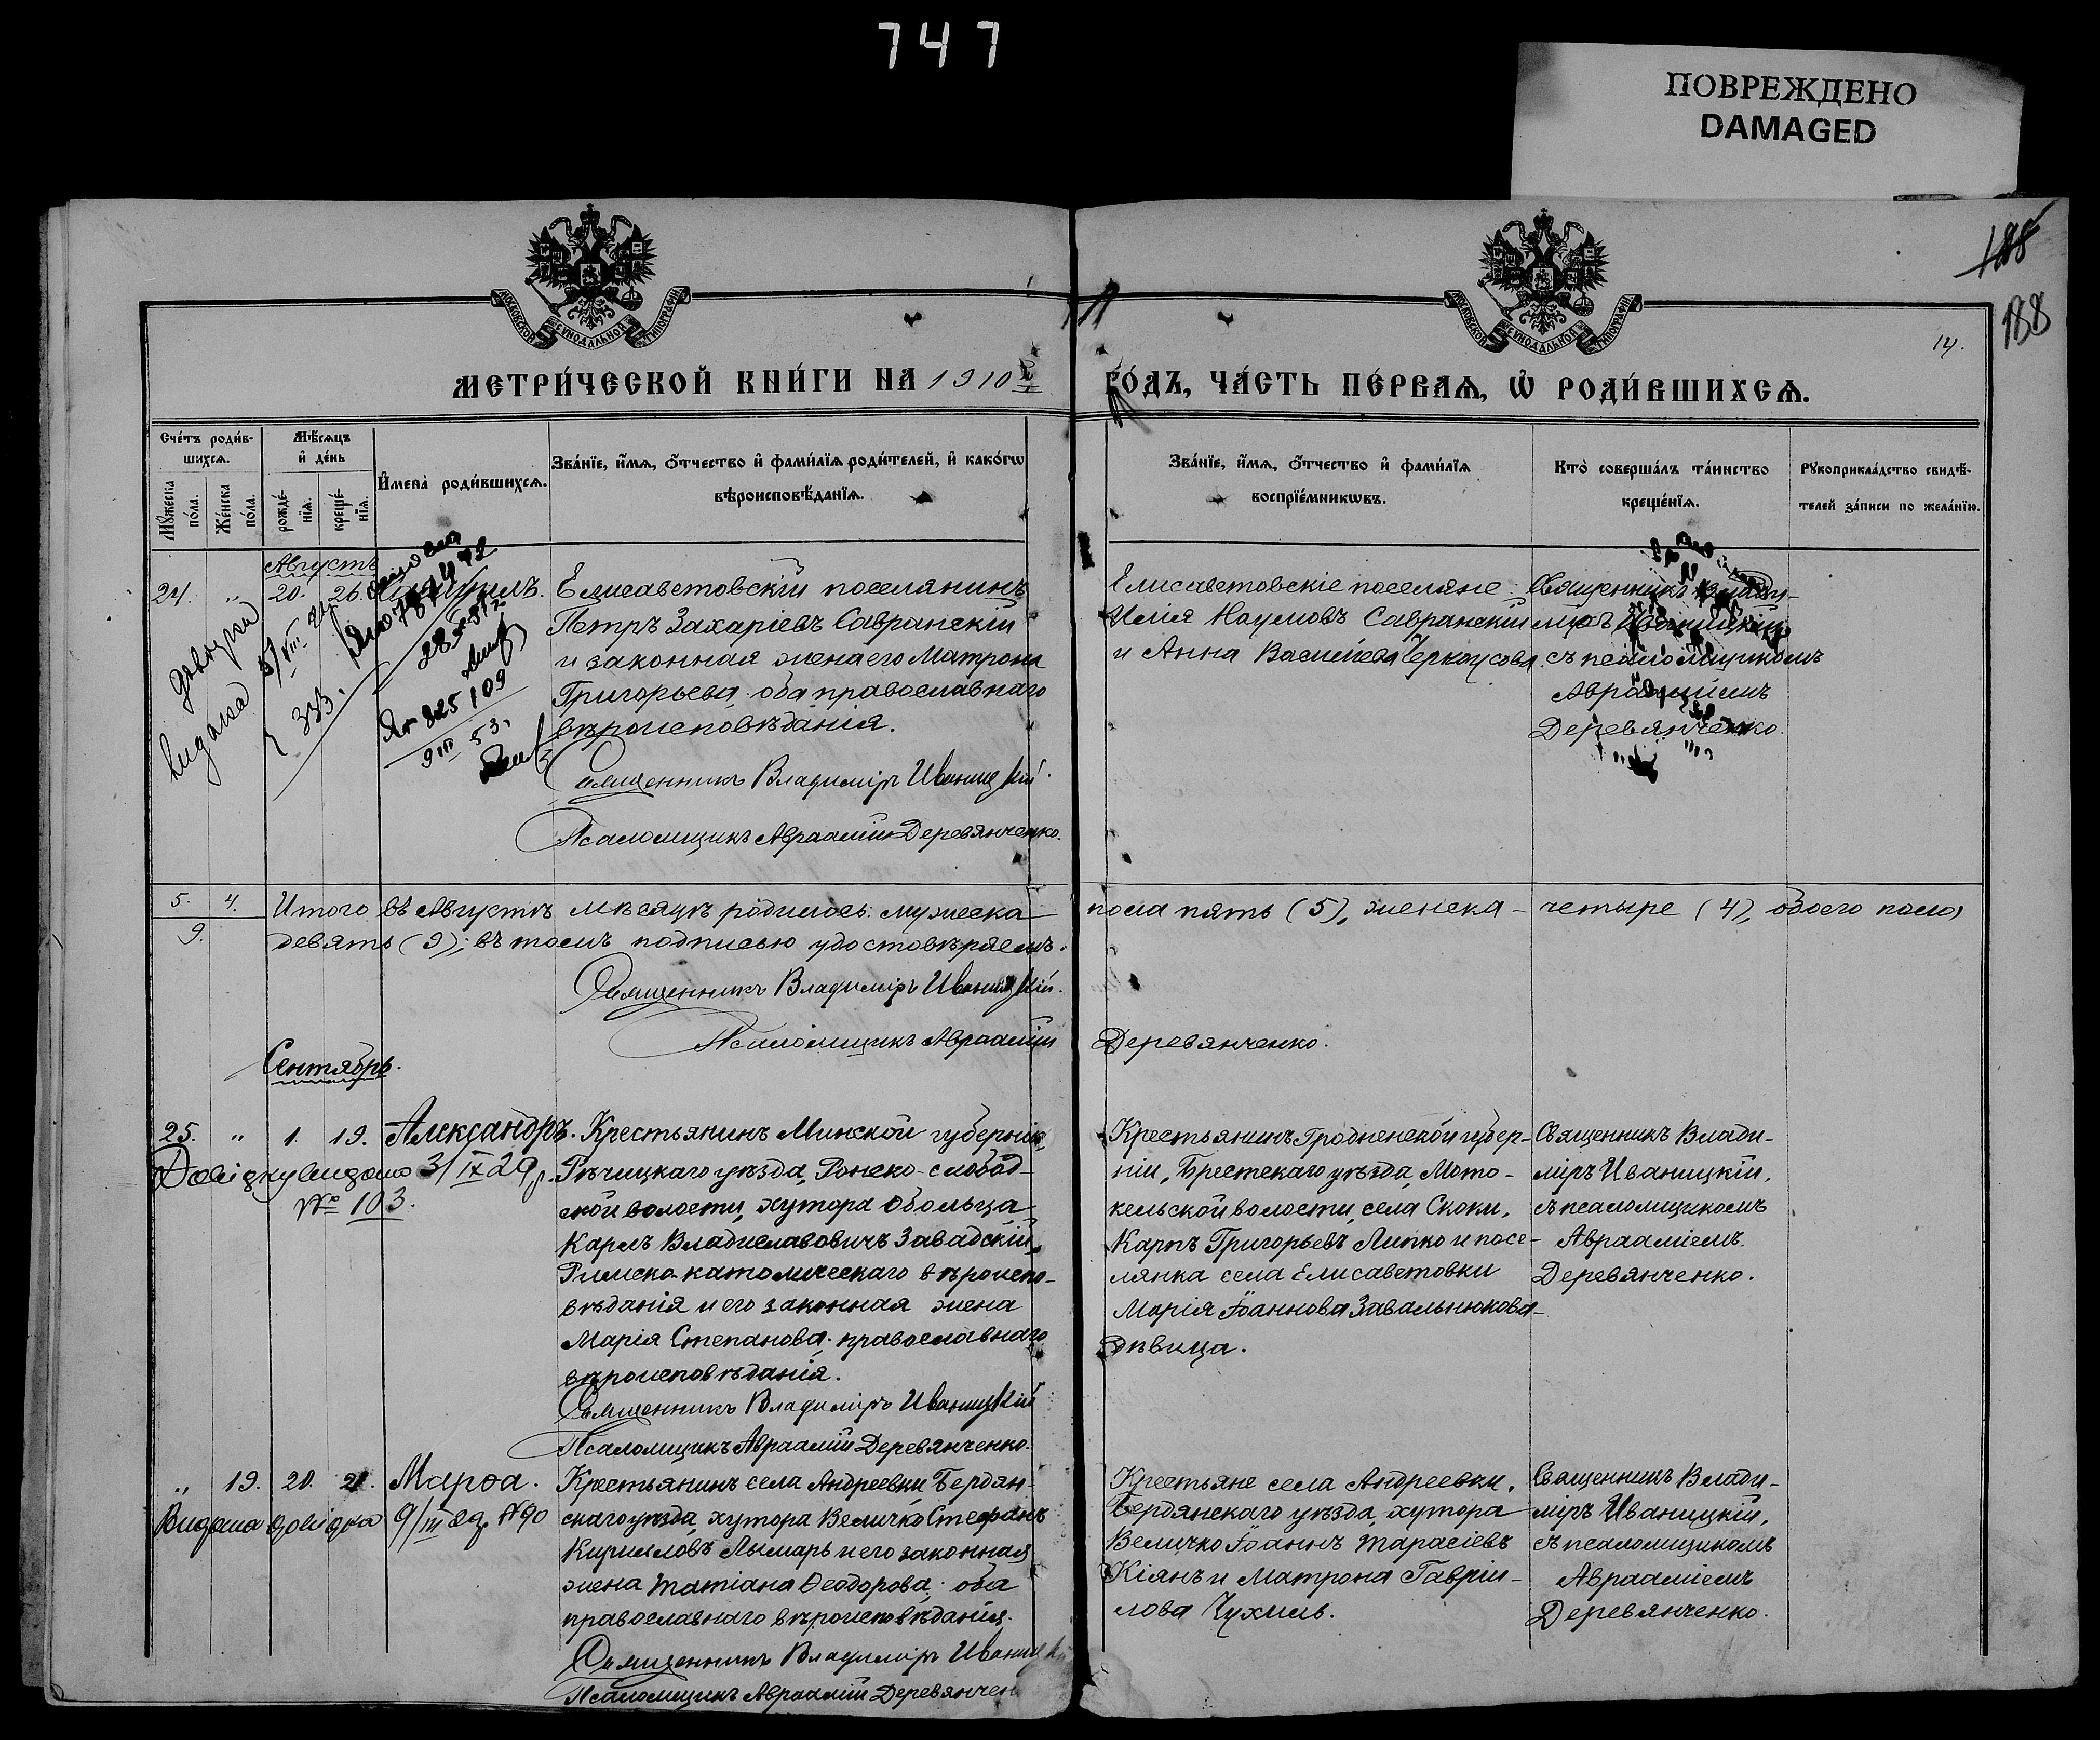 747
ПОВРЕЖДЕНО
DAMAGED
188
188
14.
МОСКОВСКОЙ СѴНОДАЛЬНОЙ ТИПОГРАФІИ
МОСКОВСКОЙ СѴНОДАЛЬНОЙ ТИПОГРАФІИ
МЕТРИ́ЧЕСКОЙ КНИ́ГИ НА 1910й ГО́ДЪ, ЧА́СТЬ ПЕ́РВАѦ, Ѡ҆ РОДИ́ВШИХСѦ.
Сче́тъ роди́в-
шихсѧ.
Мꙋ́жеска по́ла.
Же́нска по́ла.
Мѣ́сѧцъ и҆ де́нь
рожде́-
нїѧ.
креще́-
нїѧ.
И҆мена̀ роди́вшихсѧ.
Зва́нїе, и҆́мѧ, ѻ҆́тчество и҆ фами́лїѧ роди́телей, и҆ како́гѡ
вѣроисповѣ́данїѧ.
Зва́нїе, и҆́мѧ, ѻ҆́тчество и҆ фами́лїѧ
воспрїе́мникѡвъ.
Кто̀ соверша́лъ та́инство
креще́нїѧ.
Рꙋкоприкла́дство свидѣ́-
телей за́писи по жела́нїю.
Августъ
24. " 20. 26.
Елисаветовскій поселянинъ
Петръ Захаріевъ Савранскій
и законная жена его Матрона
Григорьева, оба православнаго
вѣроисповѣданія.
Священникъ Владиміръ Иваницкій.
Псаломщикъ Авраамій Деревянченко.
Елисаветовскіе поселяне:
Илія Наумовъ Савранскій
и Анна Васильева Черкаусова.
Священникъ Влади-
міръ Иваницкій
съ псаломщикомъ
Авраамиемъ
Деревянченко.
довідка
видана
333.
825109
53.
5. 4. Итого въ Августѣ мѣсяцѣ родилось: мужеска пола пять (5), женска четыре (4), обоего пола
9. девять (9); въ томъ подписью удостовѣряемъ.
Священникъ Владиміръ Иваницкій.
Псаломщикъ Авраамій Деревянченко.
Сентябрь.
25. " 1. 19. Александръ.
Довідку видано 3/IX 29 р.
№ 103.
Крестьянинъ Минской губерніи
Рѣчицкаго уѣзда, Ронско-слобод-
ской волости, хутора Обольца
Карлъ Владиславовичъ Завадскій,
Римско-католическаго вѣроиспо-
вѣданія и его законная жена
Марія Степанова, православнаго
вѣроисповѣданія.
Священникъ Владиміръ Иваницкій
Псаломщикъ Авраамій Деревянченко.
Крестьянинъ Гродненской губер-
ніи, Брестскаго уѣзда, Мото-
кельской волости, села Скоки,
Карпъ Григорьевъ Липко и посе-
лянка села Елисаветовки
Марія Іоаннова Завальнюкова
дѣвица.
Священникъ Влади-
міръ Иваницкій,
съ псаломщикомъ
Авраамiемъ
Деревянченко.
" 19. 20. 21. Марѳа.
Видана довідка 9/III 29. №90
Крестьянинъ села Андреевки Бердян-
скаго уѣзда, хутора Величко Стефанъ
Кирилловъ Лымарь и его законная
жена Татіана Ѳеодорова, оба
православнаго вѣроисповѣданія.
Священникъ Владиміръ Иваницкі
Псаломщикъ Авраамій Деревянчен
Крестьяне села Андреевки,
Бердянскаго уѣзда, хутора
Величко Іоаннъ Тарасіевъ
Кіянъ и Матрона Гавріи-
лова Чухмль.
Священникъ Влади-
міръ Иваницкій,
съ псаломщикомъ
Авраамiемъ
Деревянченко.